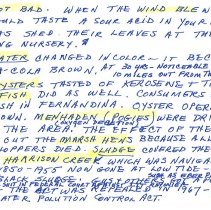 OT BAD. WHEN THE WIND BLEW
OULD TASTE A SOUR ACID IN YOUR
AS SHED. THEIR LEAVES AT THE
NG NURSERY.
ATER CHANGED IN COLOR - IT BEC
-COLA BROWN, AT 20 YDS - NOTICEABLE
10 MILES OUT FROM TH
OYSTERS TASTED OF KEROSENE + T
FISH DID AS WELL. CONSUMERS
ISH IN FERNANDINA. OYSTER OPER
OWN. MENHADEN (POGIES) WERE DRI
THE AREA. THE EFFECT OF THE
T OUT THE MARSH HENS BECAUSE ALL
DDLERS DIED. SLUDGE COVERED THE
HARRISON CREEK WHICH WAS NAVIGA
1950-1955 NOW GONE AT LOW TIDE -
BLACK SLUDGE
SUIT IN FEDERAL COURT
THE ACT WAS REPEALED IN 1967-
ATER POLLUTION CONTROL ACT.